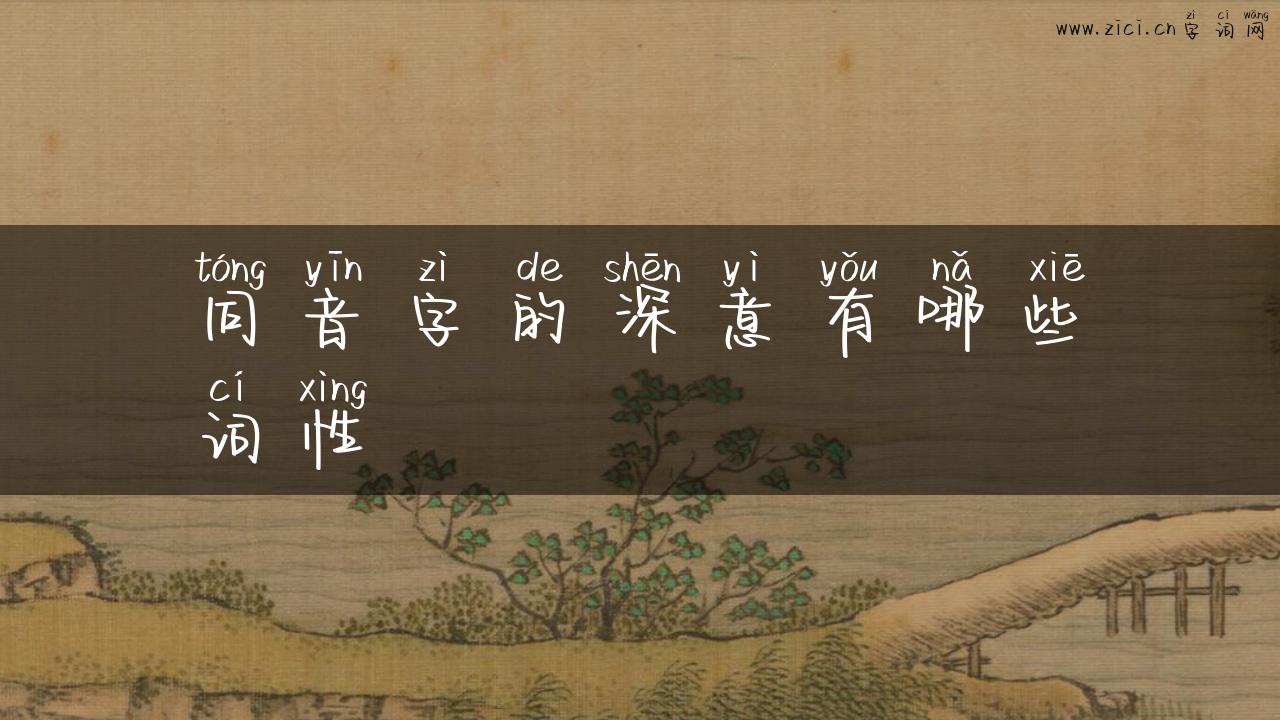 zì cí wǎng
www.zici.cn 字词网
tóng yīn zì de shēn yì yǒu nǎ xiē
同音字的深意有哪些
cí xìng
词性